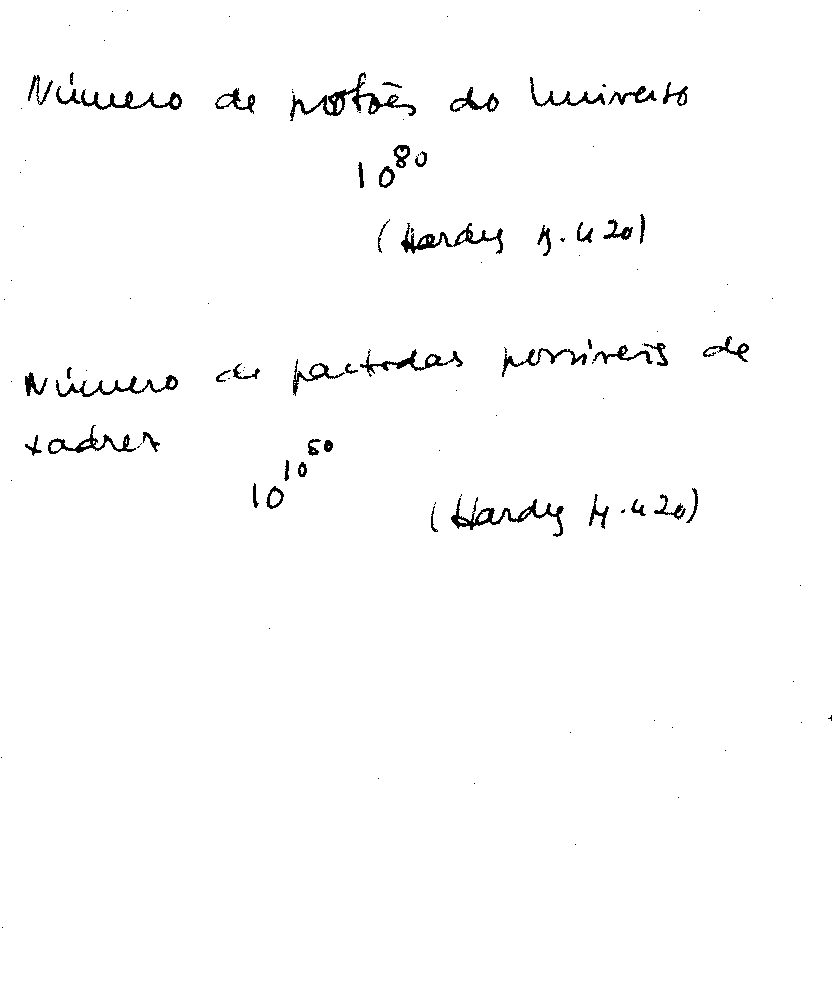 Número de protões do Universo
10^80
(Hardy p. 420)
Número de partidas possíveis de
xadrez
10^10^50
(Hardy p. 420)